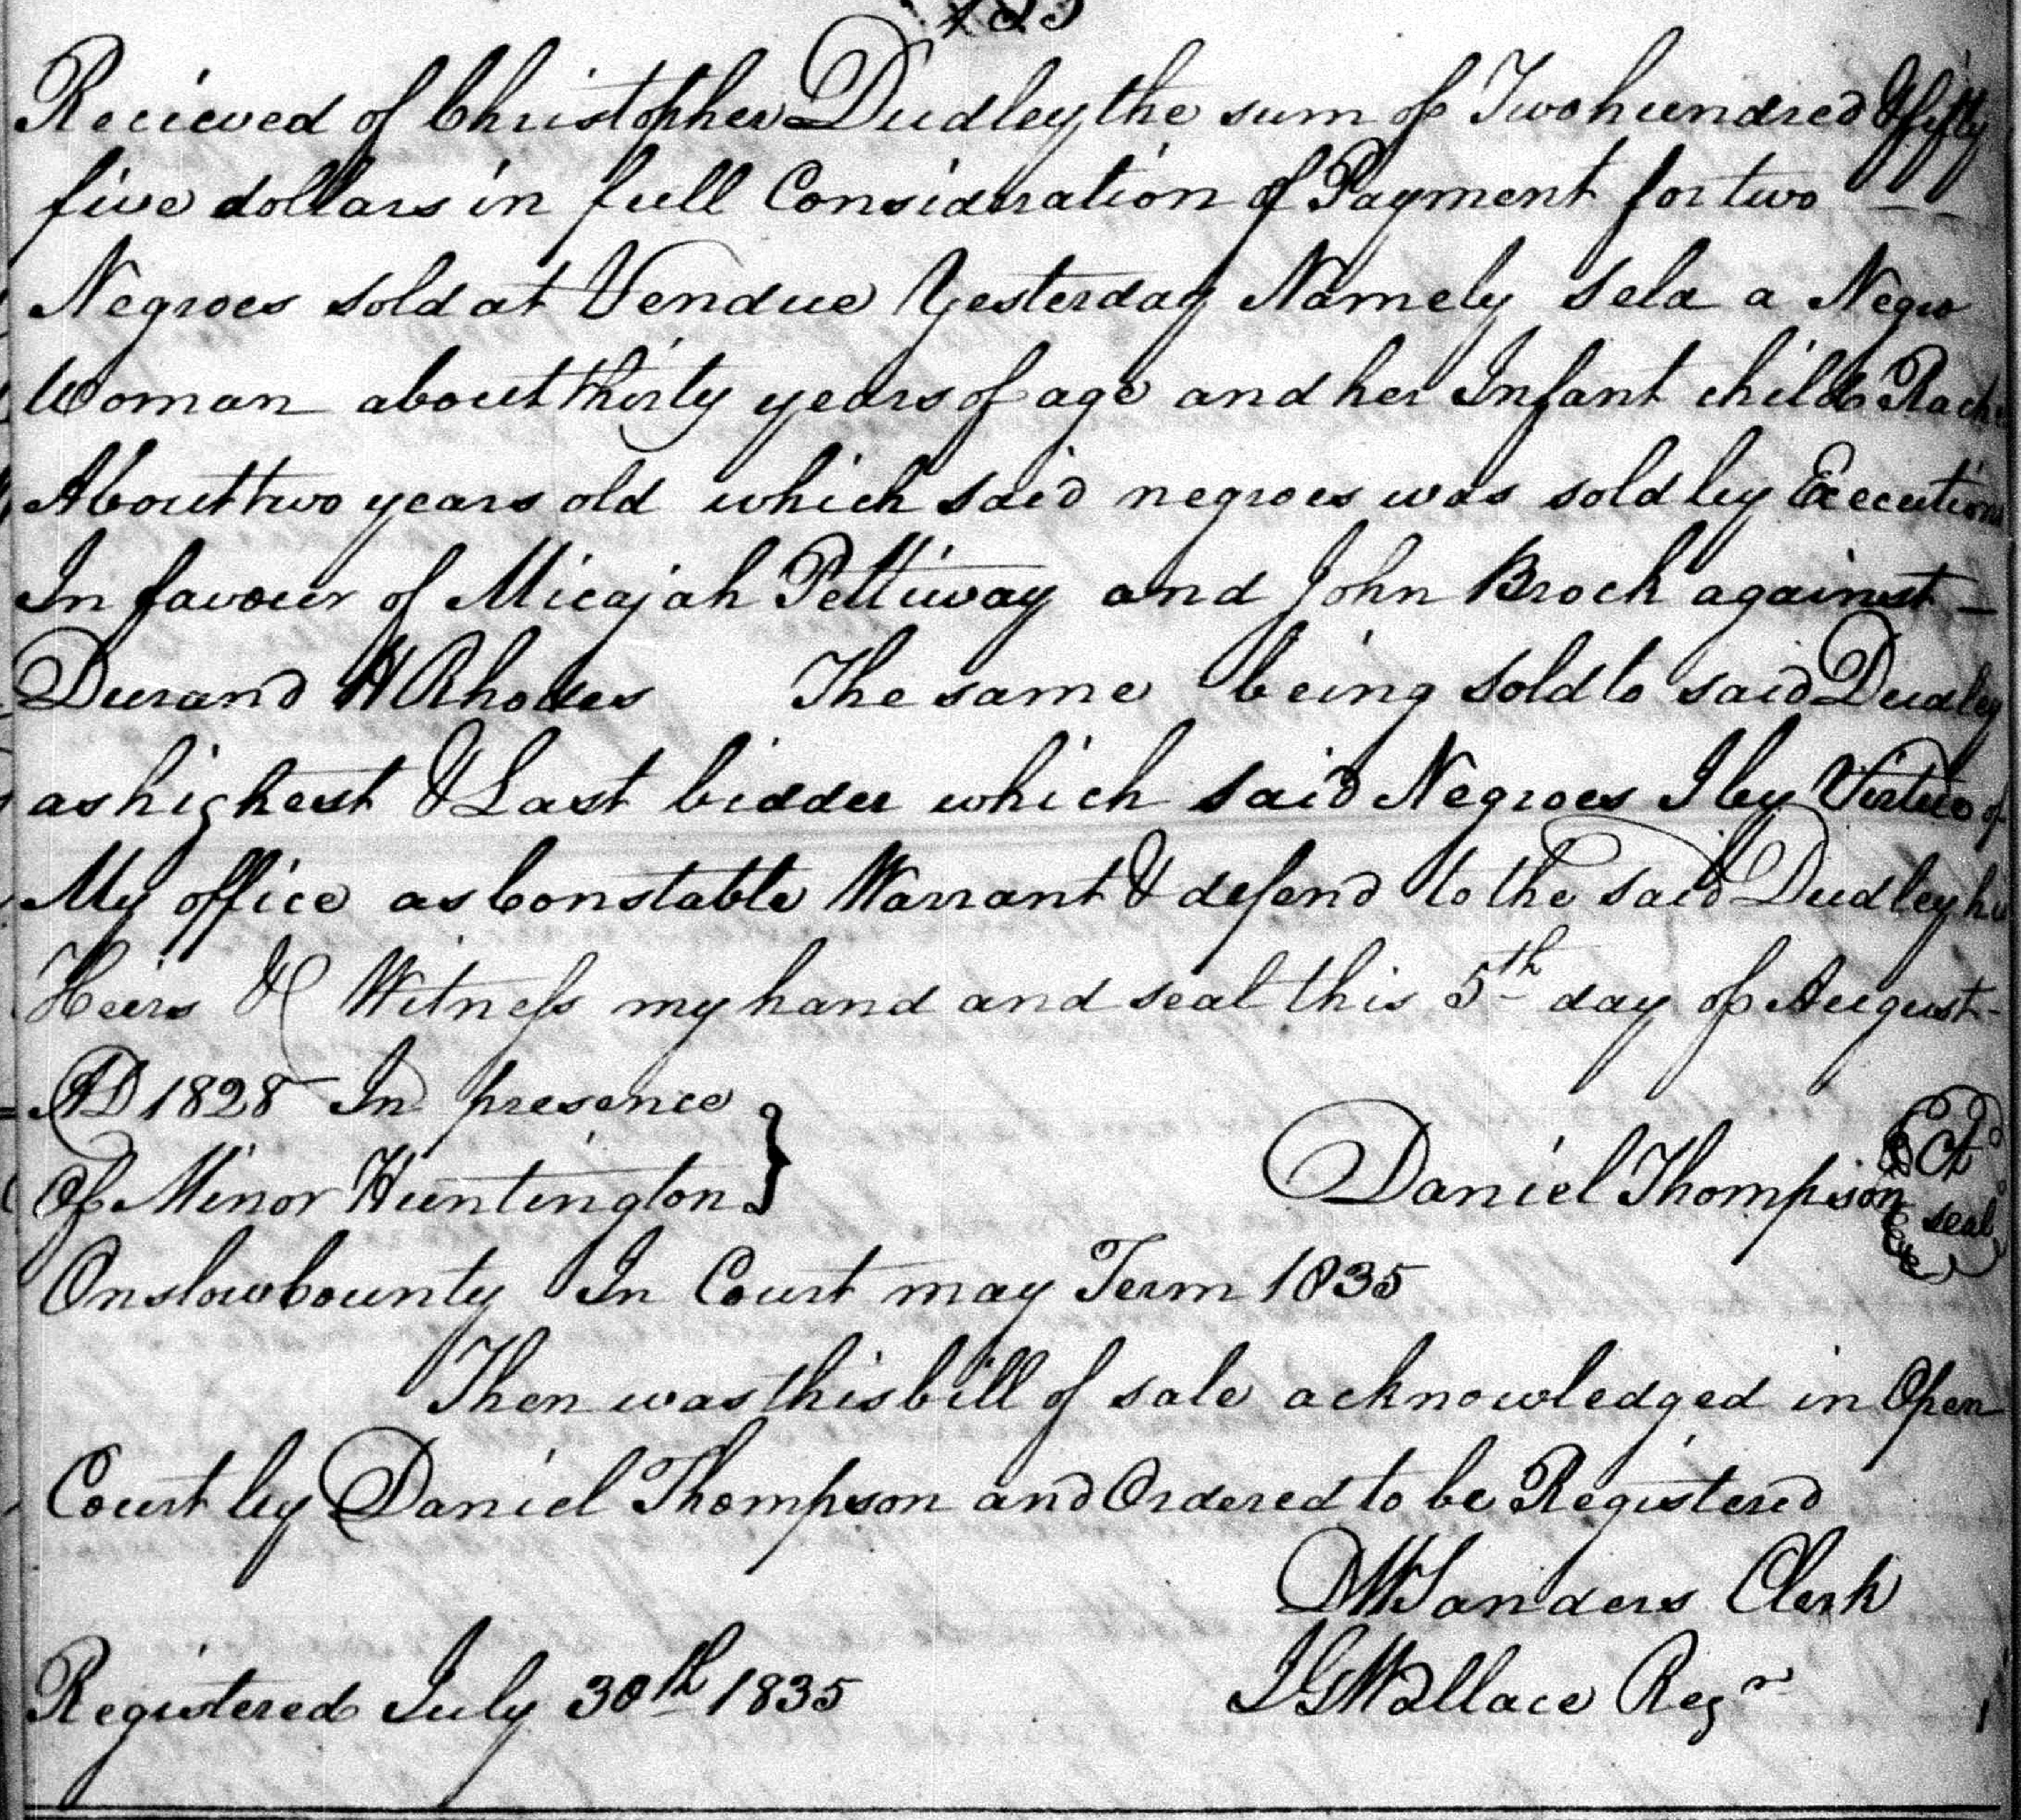 Recieved of Christopher Dudley the sum of Two hundred & fifty
five dollars in full Consideration of Payment for two
Negroes sold at Vendue Yesterday Namely Sela a Negro
Woman about thirty years of age and her Infant child
About two years old which said negroes was sold by Execution
In favour of Micajah Pettiway and John Brock against
Durand H Rhodes The same being sold to said Dudley
as highest & Last bidder which said Negroes I by Virtue of
My office as Constable Warrant & defend to the said Dudley his
Heirs &C Witness my hand and seal this 5th day of August
AD 1828 In presence
Of Minor Huntington } Daniel Thompson seal
Onslow County In Court may Term 1835
Then was this bill of sale acknowledged in Open
Court by Daniel Thompson and Ordered to be Registered
D W Sanders Clerk
Registered July 30th 1835 Wallace Regr